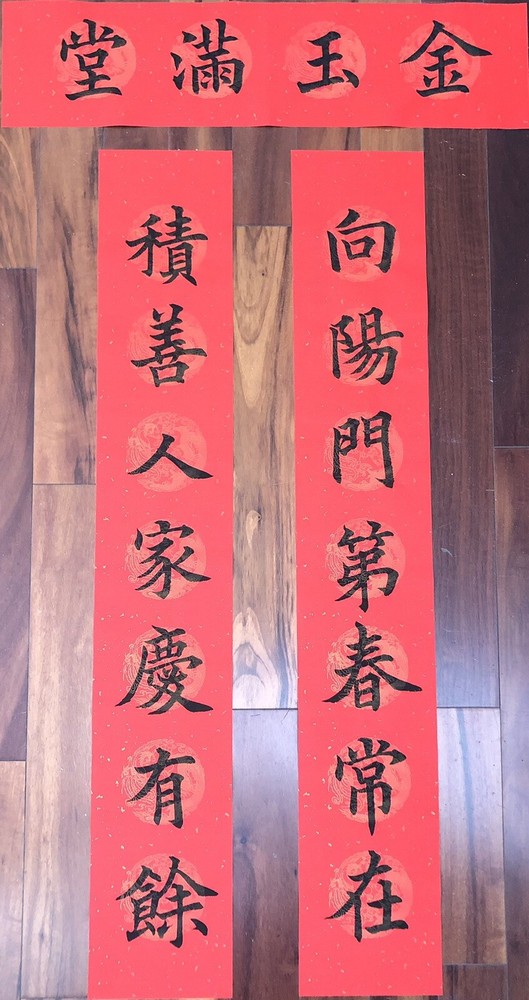 金玉滿堂
向陽門第春常在
積善人家慶有餘